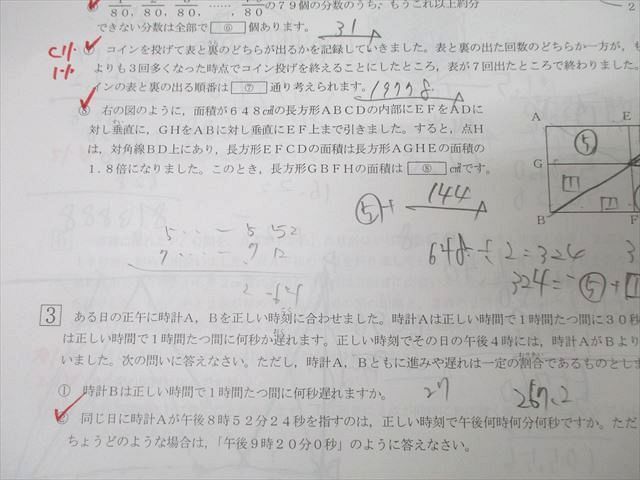 80, 80, 80, ……, 80 の79個の分数のうち、もうこれ以上約分
できない分数は全部で ⑥ 個あります。 31
コインを投げて表と裏のどちらが出るかを記録していきました。表と裏の出た回数のどちらか一方が、も
よりも3回多くなった時点でコイン投げを終えることにしたところ、表が7回出たところで終わりました。
インの表と裏の出る順番は ⑦ 通り考えられます。
右の図のように、面積が648㎠の長方形ABCDの内部にEFをADに
対し垂直に、GHをABに対し垂直にEF上まで引きました。すると、点H
は、対角線BD上にあり、長方形EFCDの面積は長方形AGHEの面積の
1.8倍になりました。このとき、長方形GBFHの面積は ⑧ ㎠です。
A E
G
B F
⑤
1 1
⑤+ 144
648÷2=324
324=⑤+1
5 … 5 52
7 … 7 12
3 ある日の正午に時計A、Bを正しい時刻に合わせました。時計Aは正しい時間で1時間たつ間に30秒
は正しい時間で1時間たつ間に何秒か遅れます。正しい時刻でその日の午後4時には、時計AがBより
いました。次の問いに答えなさい。ただし、時計A、Bともに進みや遅れは一定の割合であるものとしま
① 時計Bは正しい時間で1時間たつ間に何秒遅れますか。 27 267.2
② 同じ日に時計Aが午後8時52分24秒を指すのは、正しい時刻で午後何時何分何秒ですか。ただ
ちょうどのような場合は、「午後9時20分0秒」のように答えなさい。